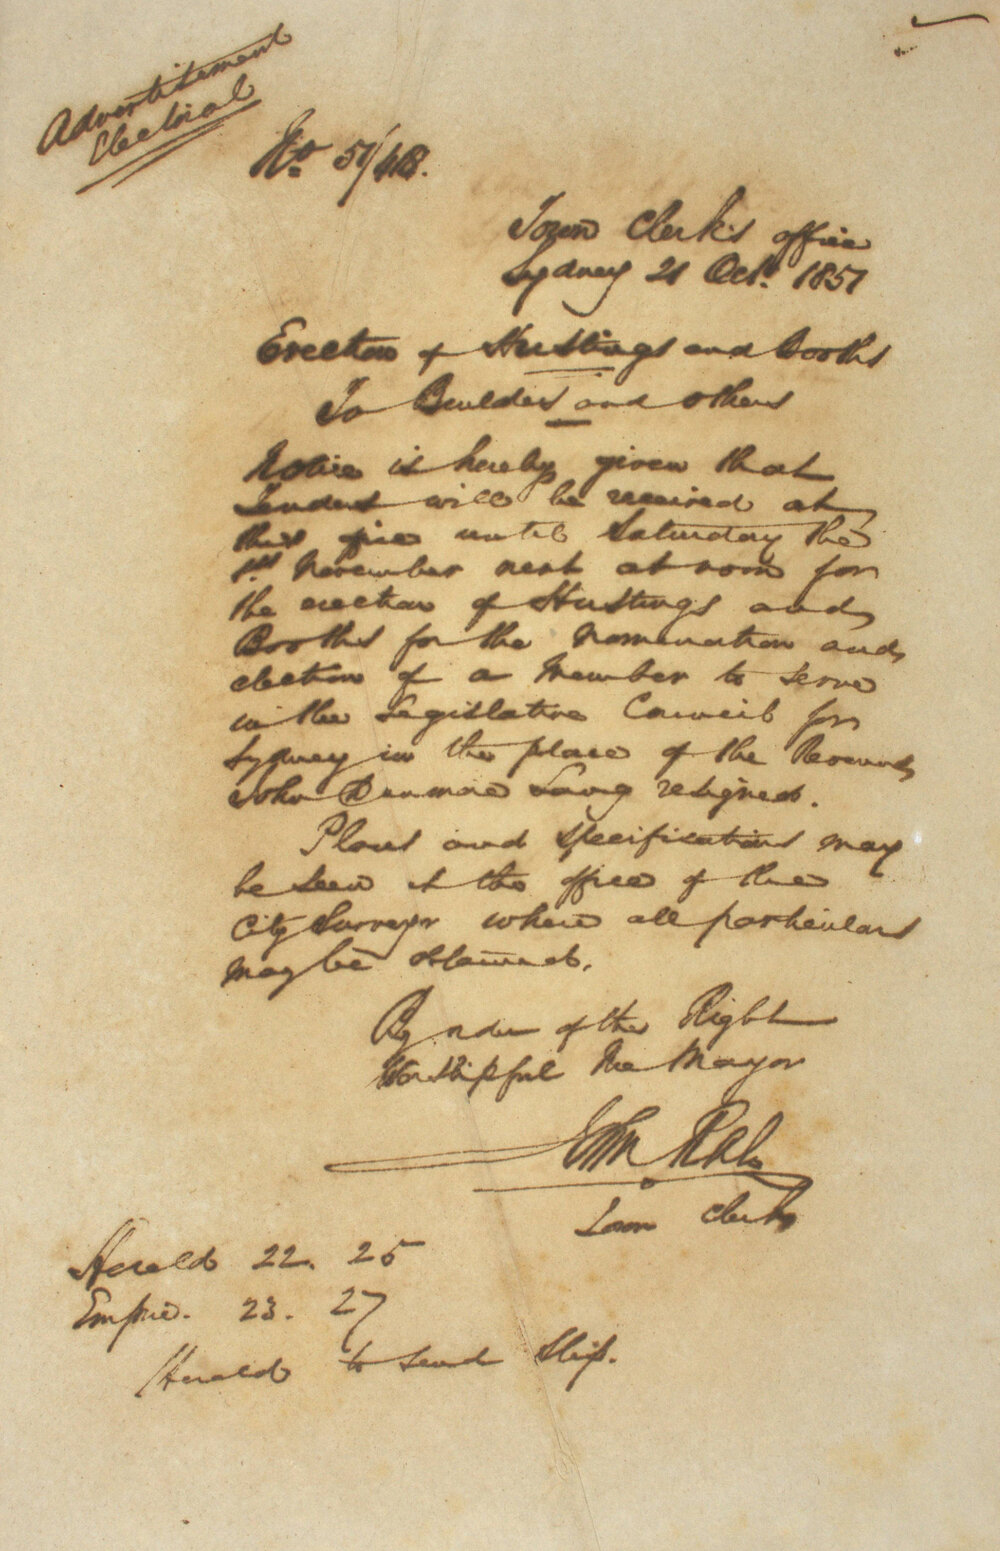 Advertisement
Electoral
No. 51/418.
Town Clerk's office
Sydney 21 Octr. 1851
Erection of Hustings and Booths
To Builders and others
Notice is hereby given that
Tenders will be received at
this office until Saturday the
1st November next at noon for
the erection of Hustings and
Booths for the nomination and
election of a Member to serve
in the Legislative Council for
Sydney in the place of the Reverend
John Dunmore Lang resigned.
Plans and specifications may
be seen at the office of the
City Surveyor where all particulars
may be obtained.
By order of the Right
Worshipful the Mayor
John Rae
Town Clerk
Herald 22. 25
Empire. 23. 27
Herald to send slip.